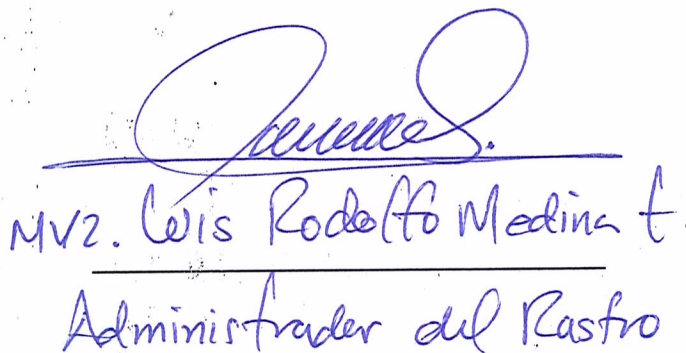 MVZ. Luis Rodolfo Medina t.
Administrador del Rastro